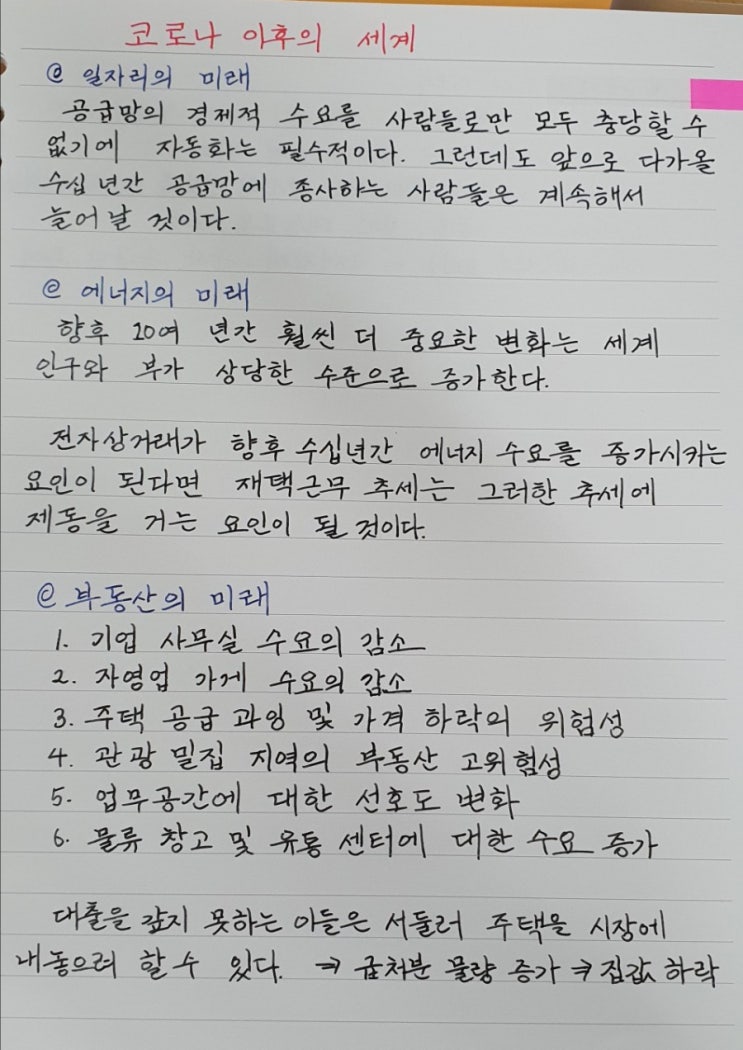 코로나 이후의 세계
@ 일자리의 미래
공급망의 경제적 수요를 사람들로만 모두 충당할 수
없기에 자동화는 필수적이다. 그런데도 앞으로 다가올
수십 년간 공급망에 종사하는 사람들은 계속해서
늘어날 것이다.
@ 에너지의 미래
향후 20여 년간 훨씬 더 중요한 변화는 세계
인구와 부가 상당한 수준으로 증가한다.
전자상거래가 향후 수십년간 에너지 수요를 증가시키는
요인이 된다면 재택근무 추세는 그러한 추세에
제동을 거는 요인이 될 것이다.
@ 부동산의 미래
1. 기업 사무실 수요의 감소
2. 자영업 가게 수요의 감소
3. 주택 공급 과잉 및 가격 하락의 위험성
4. 관광 밀집 지역의 부동산 고위험성
5. 업무공간에 대한 선호도 변화
6. 물류 창고 및 유통 센터에 대한 수요 증가
대출을 갚지 못하는 이들은 서둘러 주택을 시장에
내놓으려 할 수 있다. ⇒ 급처분 물량 증가 ⇒ 집값 하락